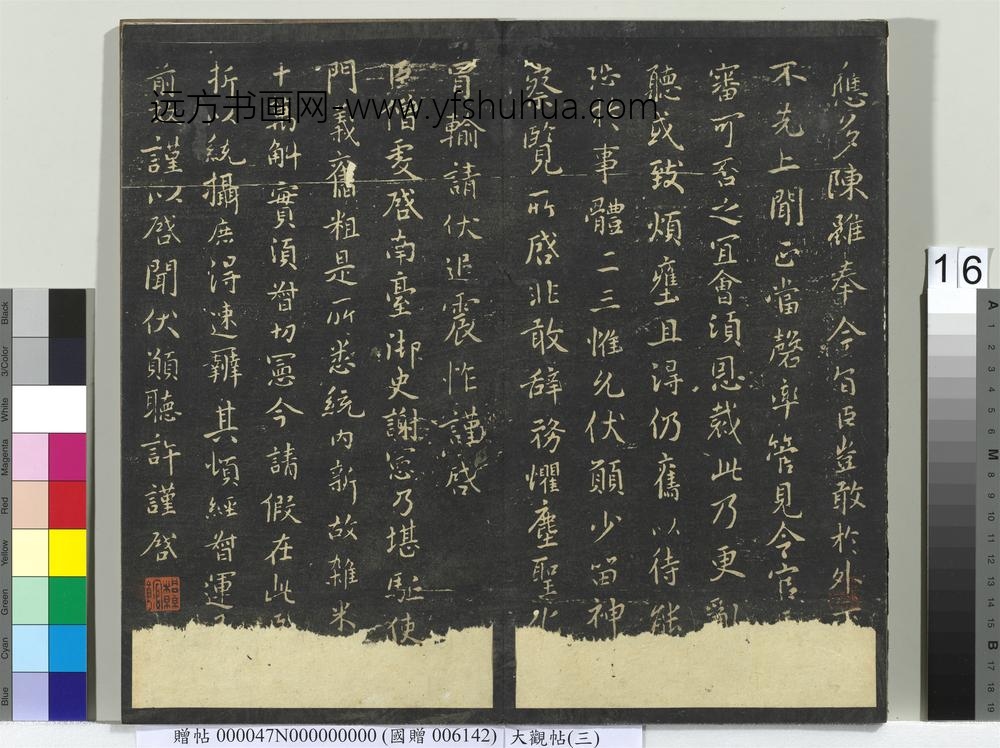 應多陳雖奉今旨臣豈敢於外
不先上聞正當罄率管見今官
審可否之宜會須恩裁此乃更亂
聽或致煩壅且得仍舊以待能
於事體二三惟允伏願少留神
察覽所啓非敢辞務懼塵聖化
冒輸請伏追震怍謹啓
臣伯 啓南臺御史謝憲乃堪駈使
門義舊粗是所悉統内新故雜米
十 斛實須督切憲今請假在此
折 統攝庶得速辦其頓經督運
前 謹以啓聞伏願聽許謹啓
远方书画网-www.yfshuhua.com
16
贈帖 000047N000000000 (國贈 006142) 大觀帖(三)
Black
3/Color
White
Magenta
Red
Yellow
Green
Cyan
Blue
A
1
2
3
4
5
6
M
8
9
10
11
12
13
14
15
B
17
18
19